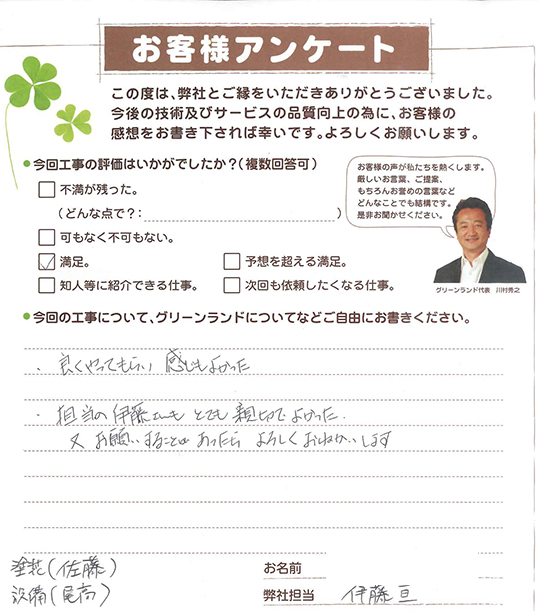 お客様アンケート
この度は、弊社とご縁をいただきありがとうございました。
今後の技術及びサービスの品質向上の為に、お客様の
感想をお書き下されば幸いです。よろしくお願いします。
●今回工事の評価はいかがでしたか?(複数回答可)
不満が残った。
(どんな点で?: )
可もなく不可もない。
満足。
予想を超える満足。
知人等に紹介できる仕事。
次回も依頼したくなる仕事。
お客様の声が私たちを熱くします。
厳しいお言葉、ご提案、
もちろんお誉めの言葉など
どんなことでも結構です。
是非お聞かせください。
グリーンランド代表 川村秀之
●今回の工事について、グリーンランドについてなどご自由にお書きください。
・良くやってもらい 感じもよかった
・担当の伊藤さんも とても 親切でよかった.
又 お願いすることが あったら よろしく おねがいします
塗装(佐藤)
設備(尾高)
お名前
弊社担当 伊藤 亘